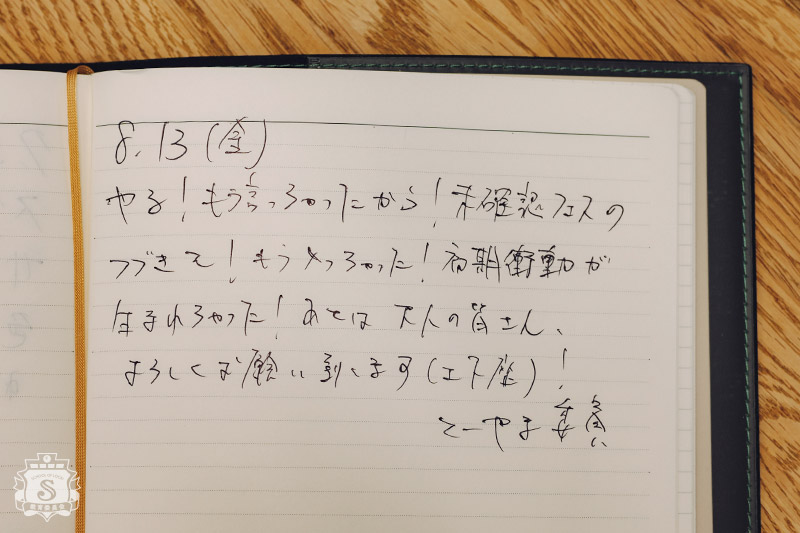 8.13(金)
やる!もう言っちゃったから!未確認フェスの
つづきを!もうやっちゃった!初期衝動が
生まれちゃった!あとは大人の皆さん、
よろしくお願い致します(エフ座)!
とーやま委員
S